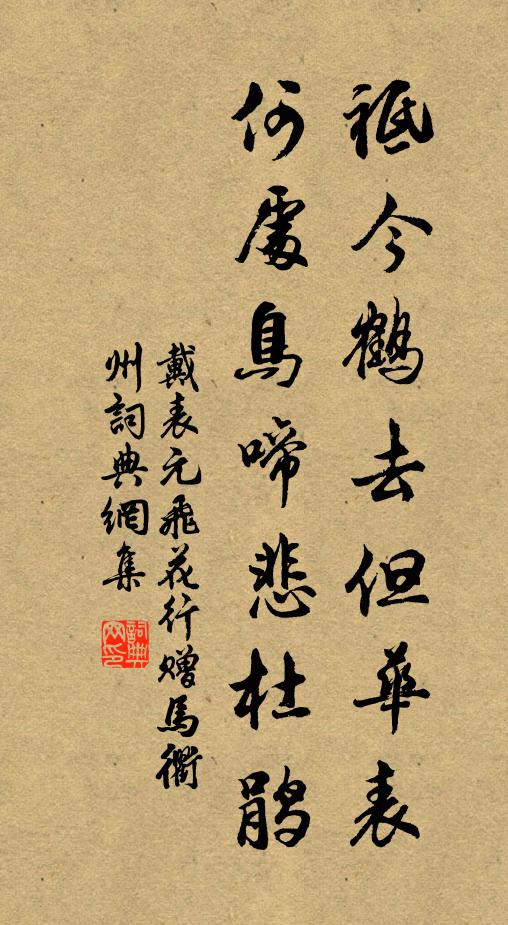 祗今鶴去但華表
何處鳥啼悲杜鵑
戴表元飛花行贈馬衢
州詞典網集
詞典
网印